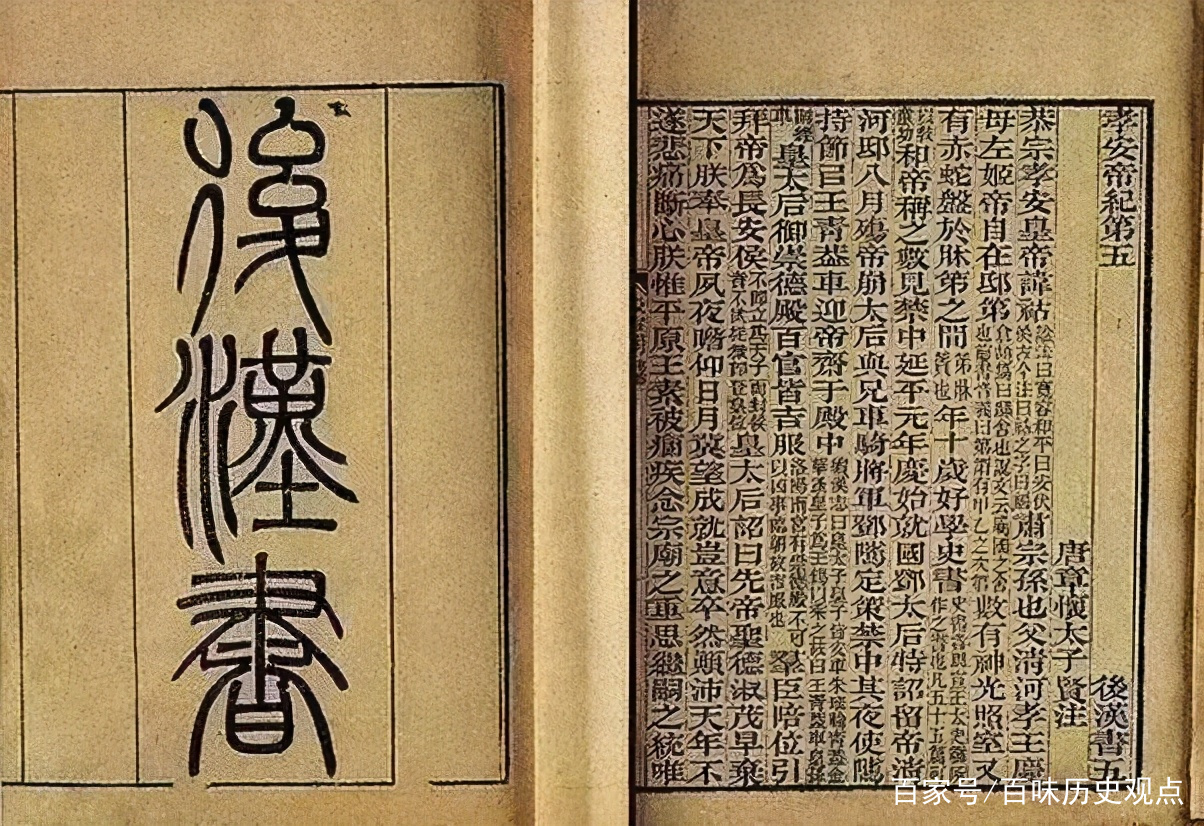 後漢書
孝安帝紀第五 後漢書五
唐章懷太子賢注
恭宗孝安皇帝諱祜 肅宗孫也父清河孝王慶
母左姬帝自在邸第 數有神光照室又
有赤蛇盤於牀第之間 年十歲好學史書
和帝稱之數見禁中延平元年慶始就國鄧太后特詔留帝清
河邸八月殤帝崩太后與兄車騎將軍鄧隲定策禁中其夜使隲
持節㠯王青蓋車迎帝齋于殿中
皇太后御崇德殿百官皆吉服 洛陽南宮有崇德殿不可以凶事臨朝故吉服也 羣臣陪位引
拜帝爲長安侯 不即立爲天子而封侯者不欲從微即登皇位 皇太后詔曰先帝聖德淑茂早棄
天下朕奉皇帝夙夜瞻仰日月冀望成就豈意卒然顛沛天年不
遂悲痛斷心朕惟平原王素被痼疾念宗廟之重思繼嗣之統唯
百家号/百味历史观点